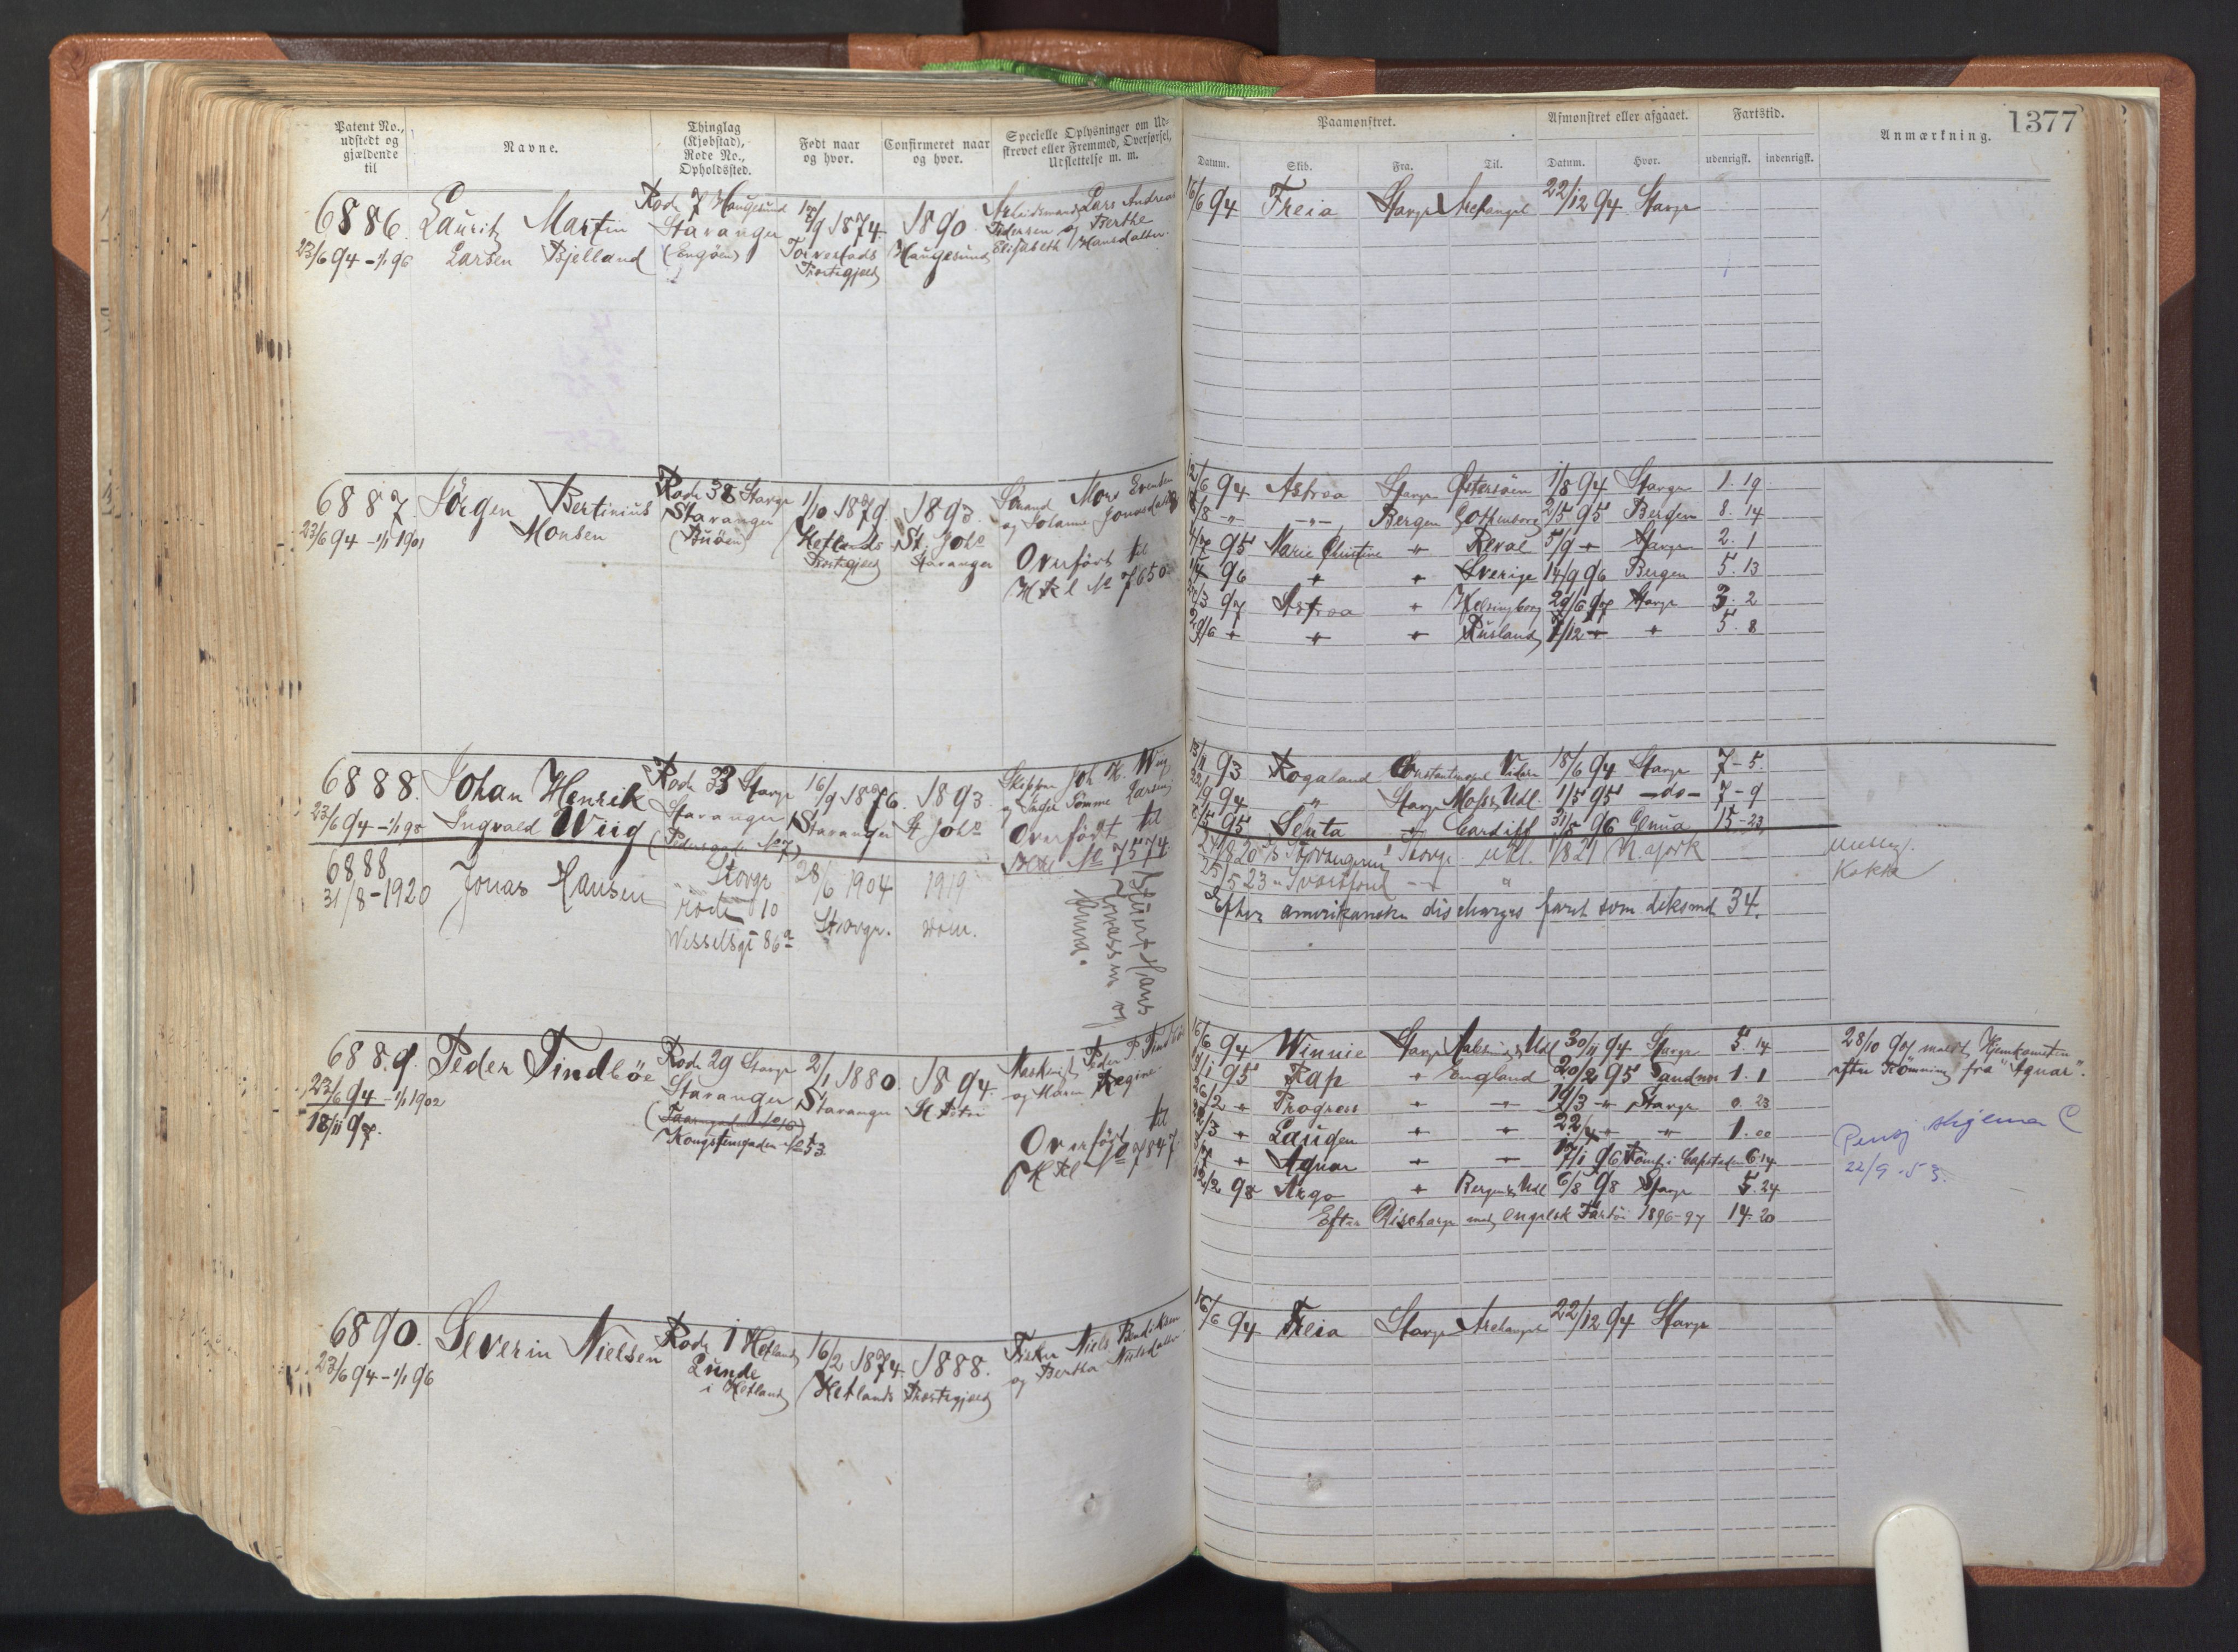 Patent No.,
udstedt og
gjældende
til
Navne.
Thinglag
(Kjøbstad),
Rode No.,
Opholdssted.
Født naar
og hvor.
Confirmeret naar
og hvor.
Specielle Oplysninger om Ud-
strevet eller Fremmed, Overførsel,
Udslettelse m. m.
Paamønstret.
Afmønstret eller afgaaet.
Fartstid.
Anmærkning.
1377
Datum.
Skib.
Fra.
Til.
Datum.
Hvor.
udenrigsk.
indenrigsk.
6886. Lauritz Martin
23/6 94 - 1/1 96 Larsen Bjelland
Rode 7 Haugesund
Stavanger
(Engøen)
1874
Torvestads
Præstegjeld
1890
Haugesund
Arbeidsmand Lars Andreas
Pedersen og Berthe
Elisabeth Hansdatter.
16/6 94 Freia Stavgr Archangel 22/12 94 Stavgr
6887. Jörgen Bertinius
23/6 94 - 1/1 1901 Monsen
Rode 38 Stavgr
Stavanger
(Buøen)
1/10 1879.
Hetlands
Præstegjeld
1893.
St. Johs
Stavanger
Strand Mons Evensen
og Johanne Jonasdatter
Overført til
H K l No 7650
12/6 94 Astræa Stavgr Østersøen 1/8 94 Stavgr 1. 19
8/8 - " - - " - Bergen Gothenborg 2/5 95 Bergen 8. 14
4/7 95 Marie Christine " Reval 5/9 " Stavgr 2. 1
1/4 96 " " Sverige 14/9 96 Bergen 5. 13
28/3 97 Astræa " Helsingborg 29/6 97 Stavgr 3. 2
29/6 " " " Rusland 7/12 " " 5. 8
6888. Johan Henrik
23/6 94 - 1/1 98 Ingvald Wiig
Rode 33 Stavgr
Stavanger
(Pedersgaden No 7)
16/9 1876.
Stavanger
1893.
St Johs
Skipper Joh. H. Wiig
og Inger Tomine Larsen
Overført til
H K l No 7574
13/11 93 Rogaland Constantinopel Viders 18/6 94 Stavgr 7 - 5.
22/9 94 " Stavgr Moss & Udl. 1/5 95 - do - 7 - 9
7/5 95 Senta " Cardiff 31/8 96 Genua 15 - 23
6888
31/8 - 1920 Jonas Hansen
Stavgr
rode 10
Wesselsgt 86a
28/6 1904
Stavgr.
1919
dom.
Hans
Jonassen og
Anna.
27/8 20 Stavangeren Stavgr Utl. 1/8 21 N. York
25/5 23 " Svartfond - " - "
Efter amerikanske discharges faret som deksmd 34.
Messeg.
Kokke
6889. Peder Tindböe
23/6 94 - 1/1 1902
18/11 97.
Rode 29 Stavgr
Stavanger
Kongsteensgaden No 53
2/1 1880.
Stavanger
1894.
St Petri
Maskinist Peder P. Tindböe
og Maren Regine
Overført til
H K l No 7847.
16/6 94 Winnie Stavgr & Udl 30/11 94 Stavgr 5. 14
19/1 95 Rap " England 20/2 95 Sandnes 1. 1
26/2 " Progress " " 19/3 " Stavgr 0. 23
22/3 " Laugen " " 22/4 " " 1. 00
" Agnar " " 17/1 96 Römt i Capstaden 6. 14
12/2 98 Argo " Bergen & Udl 6/8 98 Stavgr 5. 24
Efter Discharge med engelsk Fartöi 1896-97 14. 20
28/10 97 meldt Hjemkommen
efter Römning fra "Agnar".
Pensj. skjema C
22/9 - 53.
6890. Severin Nielsen
23/6 94 - 1/1 96
Rode 1 Hetland
Lunde
i Hetland
16/2 1874.
Hetlands Præstegjeld
1888.
Fisker Niels Bendiksen
og Bertha Nielsdatter
16/6 94 Freia Stavgr Archangel 22/12 94 Stavgr